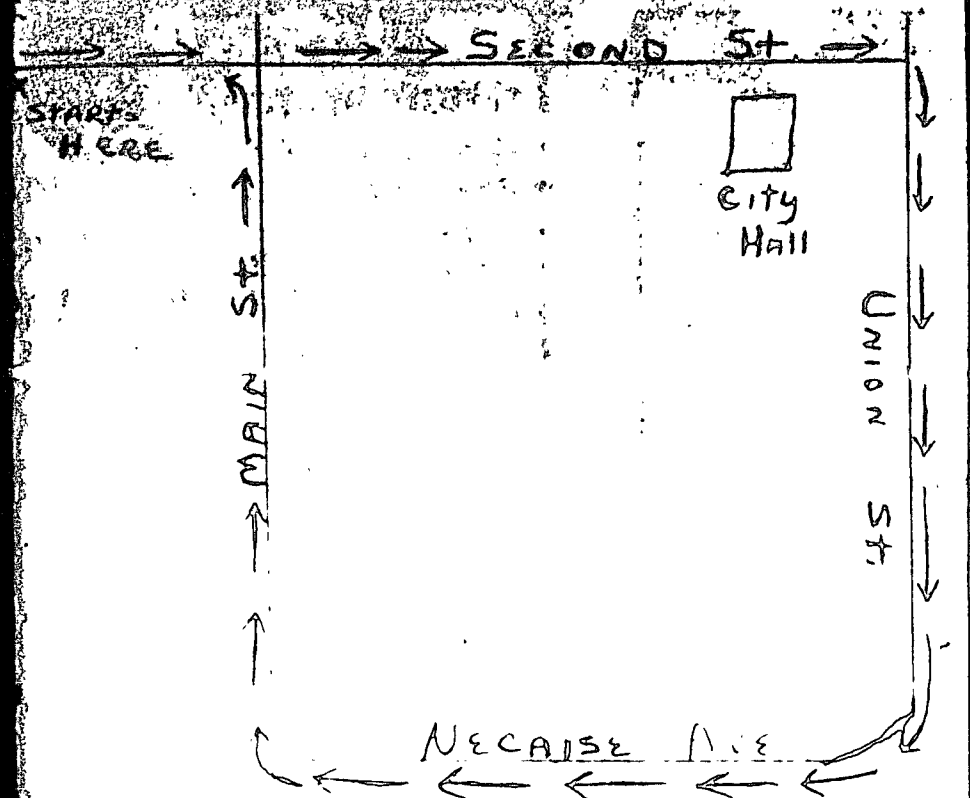 SECOND St
STARTS
HERE
City
Hall
MAIN St.
UNION St.
NECAISE AVE